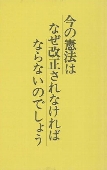 今の憲法は
なぜ改正されなければ
ならないのでしょう